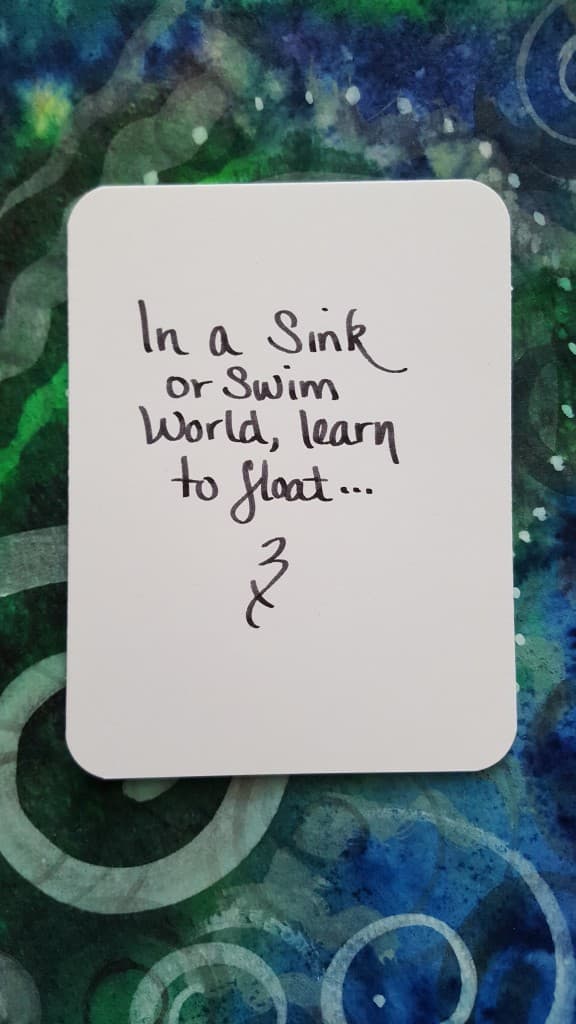 In a Sink
or Swim
World, learn
to float...